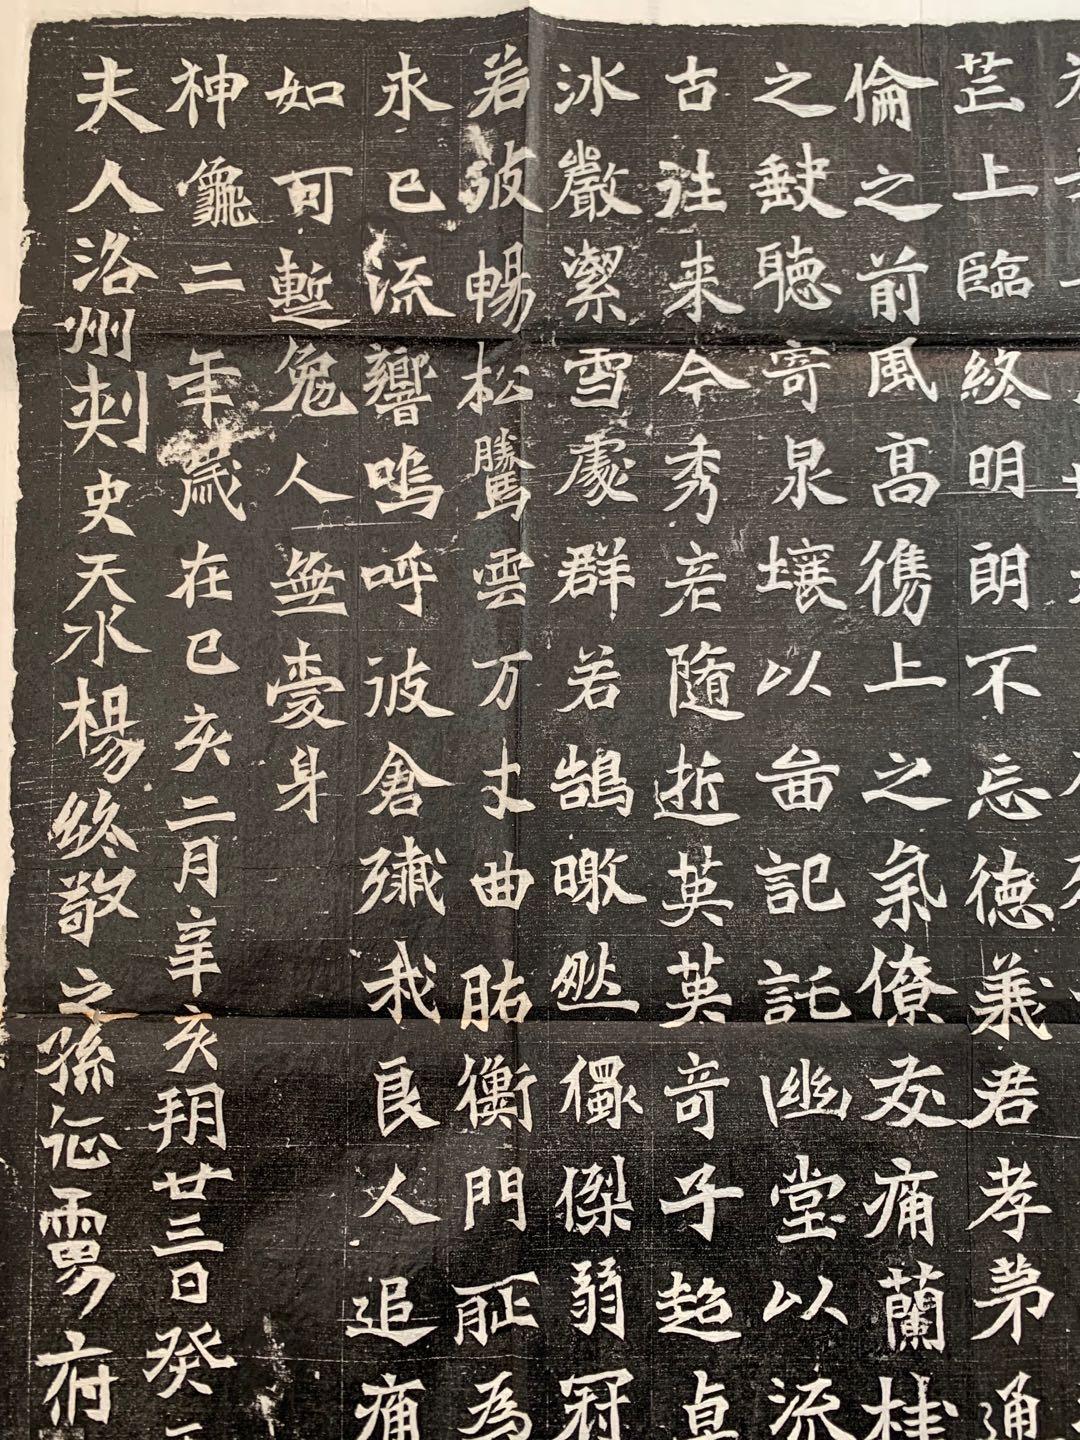 芒上臨終明朗不忘德義君孝弟通
倫之前風高儁上之氣僚友痛蘭桂
之缺聽寄泉壤以啚記託幽堂以流
古往来今秀老随逝英英奇子超卓
冰嚴潔雪處群若鵠曒然儁傑弱冠
若彼暢松騰雲万丈曲肱衡門為
永已流響嗚呼彼倉殲我良人追痛
如可蹔兔人無憂身
神龜二年歲在己亥二月辛亥朔廿三日癸
夫人洛州刾史天水楊終敬之孫征虜府